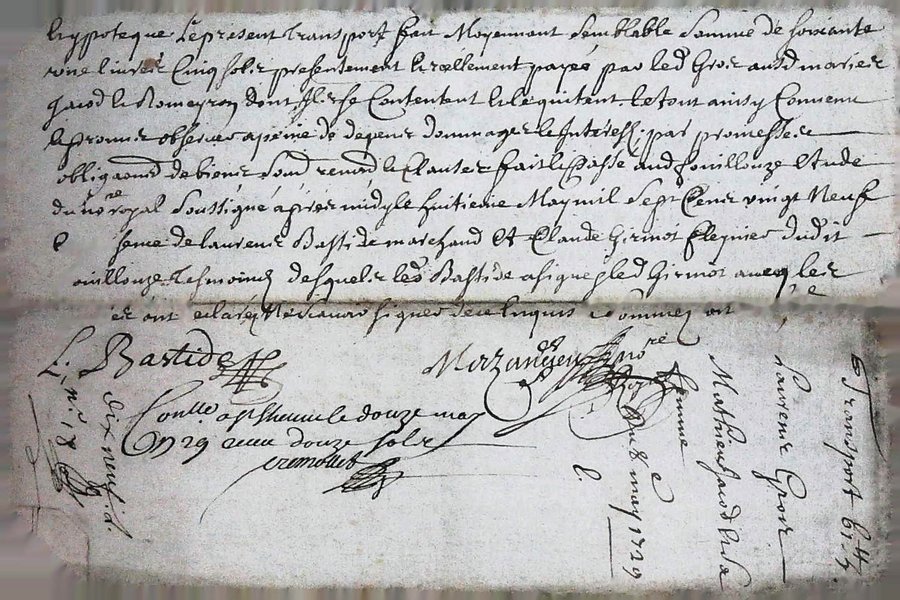 hypoteque Le present Transport fait Moyennant Semblable Somme de soixante
une livres Cinq sols presentement et reellement payés par led Gros aud mariés
Jacod et Romeyron dont Ils se Contentent et le quitent Le tout ainsy Convenu
et promis observer a peine de depens dommages et Interest par promesse
obligaons de biens soud renond et Clauses fait et Passé aud fouillouze Etude
du nore royal soussigné apres midy le huitieme May mil Sept Cens vingt Neuf
seme de laurens Bastide marchand Et Claude Girmot dudit
ouillouze Tesmoins desquels led Bastide a signé led Girmot avecq les
es ont declaré Ne scavoir signer de ce Enquis sommes ont
L. Bastide
nore
Conlle a St le douze may
1729 receu douze sols
dix neuf d.
L. n. 18
Transport 61 lt 5
Lavrens Gros
Mathieu Jacod et sa
femme
Du 8e may 1729